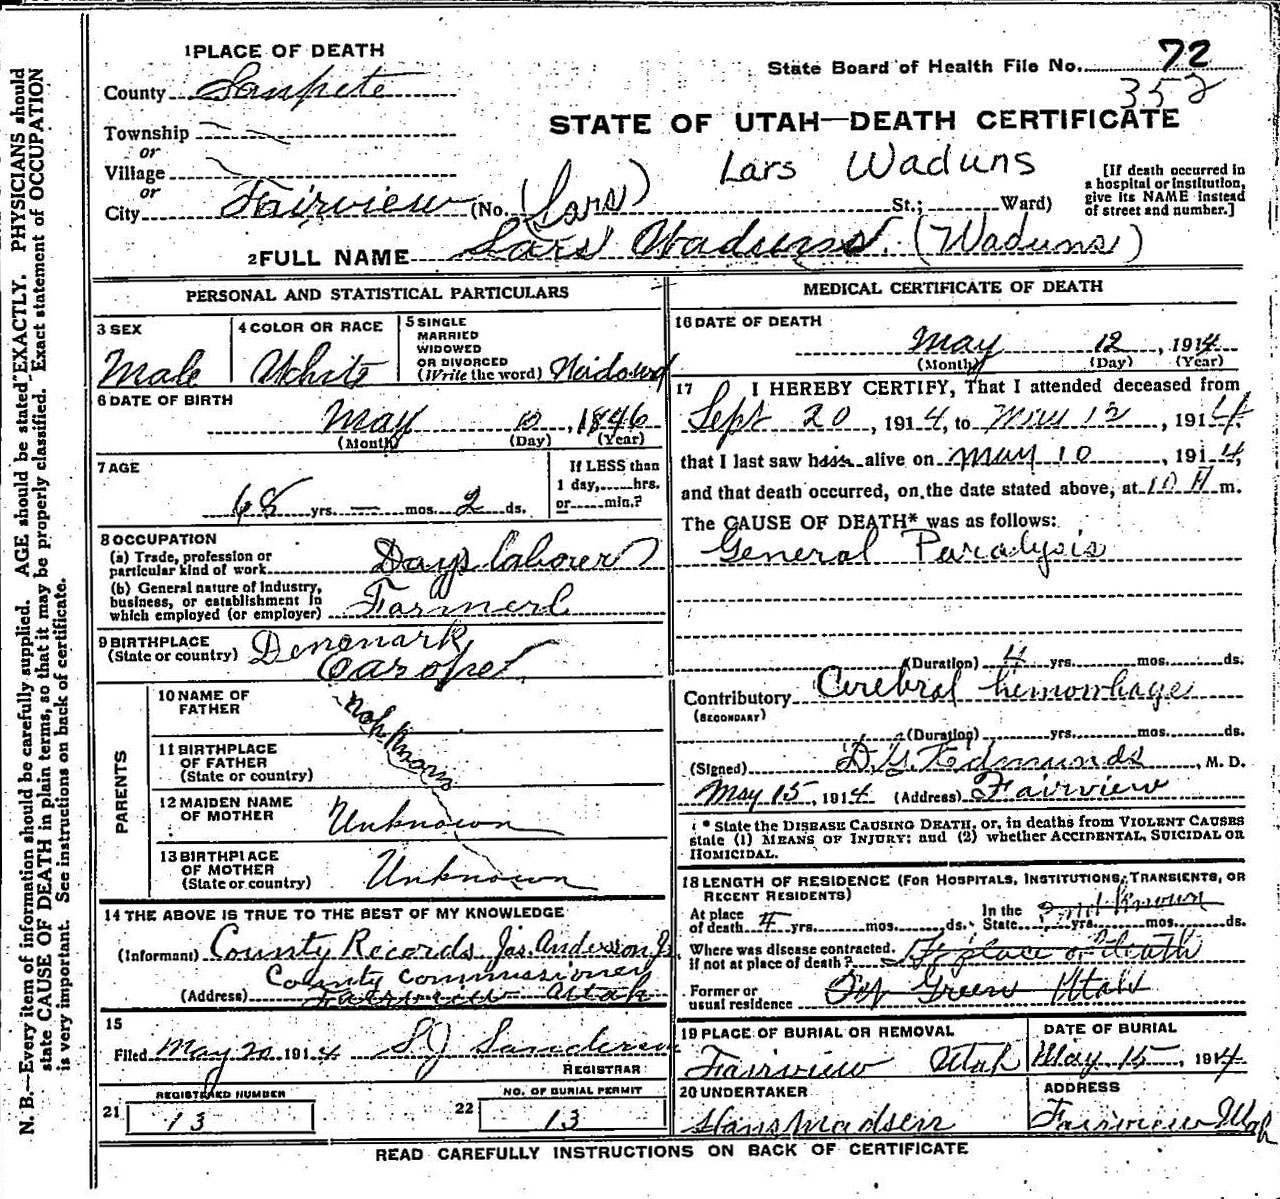 1 PLACE OF DEATH
State Board of Health File No. 72
352
County Sanpete
STATE OF UTAH—DEATH CERTIFICATE
Township
or
Village
or
Lars Waduns
[If death occurred in
a hospital or institution,
give its NAME instead
of street and number.]
City Fairview (No. (Lars) St.; Ward)
2 FULL NAME Lars Waduns (Waduns)
PERSONAL AND STATISTICAL PARTICULARS
3 SEX
Male
4 COLOR OR RACE
White
5 SINGLE
MARRIED
WIDOWED
OR DIVORCED
(Write the word) Widowed
6 DATE OF BIRTH
May 10, 1846
(Month) (Day) (Year)
7 AGE
68 yrs. — mos. 2 ds.
If LESS than
1 day, hrs.
or min.?
8 OCCUPATION
(a) Trade, profession or
particular kind of work Days laborer
(b) General nature of industry,
business, or establishment in
which employed (or employer) Farmerl
9 BIRTHPLACE
(State or country) Denmark
PARENTS
10 NAME OF
FATHER
Not Known
11 BIRTHPLACE
OF FATHER
(State or country)
12 MAIDEN NAME
OF MOTHER
Unknown
13 BIRTHPLACE
OF MOTHER
(State or country)
Unknown
14 THE ABOVE IS TRUE TO THE BEST OF MY KNOWLEDGE
(Informant) County Records Jas. Anderson Jr
County Commissioner
(Address) Fairview Utah
15
Filed May 20 1914 Sanderson
REGISTRAR
REGISTERED NUMBER
21 13
NO. OF BURIAL PERMIT
22 13
MEDICAL CERTIFICATE OF DEATH
16 DATE OF DEATH
May 12, 1914
(Month) (Day) (Year)
17 I HEREBY CERTIFY, That I attended deceased from
Sept 20, 1914, to May 12, 1914.
that I last saw him alive on May 10, 1914,
and that death occurred, on the date stated above, at 10 A m.
The CAUSE OF DEATH* was as follows:
General Paralysis
(Duration) 4 yrs. mos. ds.
Contributory Cerebral hemorrhage
(SECONDARY)
(Duration) yrs. mos. ds.
(Signed) D.G. Edmunds, M. D.
May 15, 1914 (Address) Fairview
* State the DISEASE CAUSING DEATH, or, in deaths from VIOLENT CAUSES
state (1) MEANS OF INJURY; and (2) whether ACCIDENTAL, SUICIDAL OR
HOMICIDAL.
18 LENGTH OF RESIDENCE (FOR HOSPITALS, INSTITUTIONS, TRANSIENTS, OR
RECENT RESIDENTS)
At place
of death 4 yrs. mos. ds.
In the
State yrs. mos. ds.
Where was disease contracted.
If not at place of death? place of death
Former or
usual residence Green Utah
19 PLACE OF BURIAL OR REMOVAL
Fairview Utah
DATE OF BURIAL
May 15, 1914
20 UNDERTAKER
Hans Madsen
ADDRESS
Fairview Utah
READ CAREFULLY INSTRUCTIONS ON BACK OF CERTIFICATE
N. B.—Every item of information should be carefully supplied. AGE should be stated EXACTLY. PHYSICIANS should
state CAUSE OF DEATH in plain terms, so that it may be properly classified. Exact statement of OCCUPATION
is very important. See instructions on back of certificate.